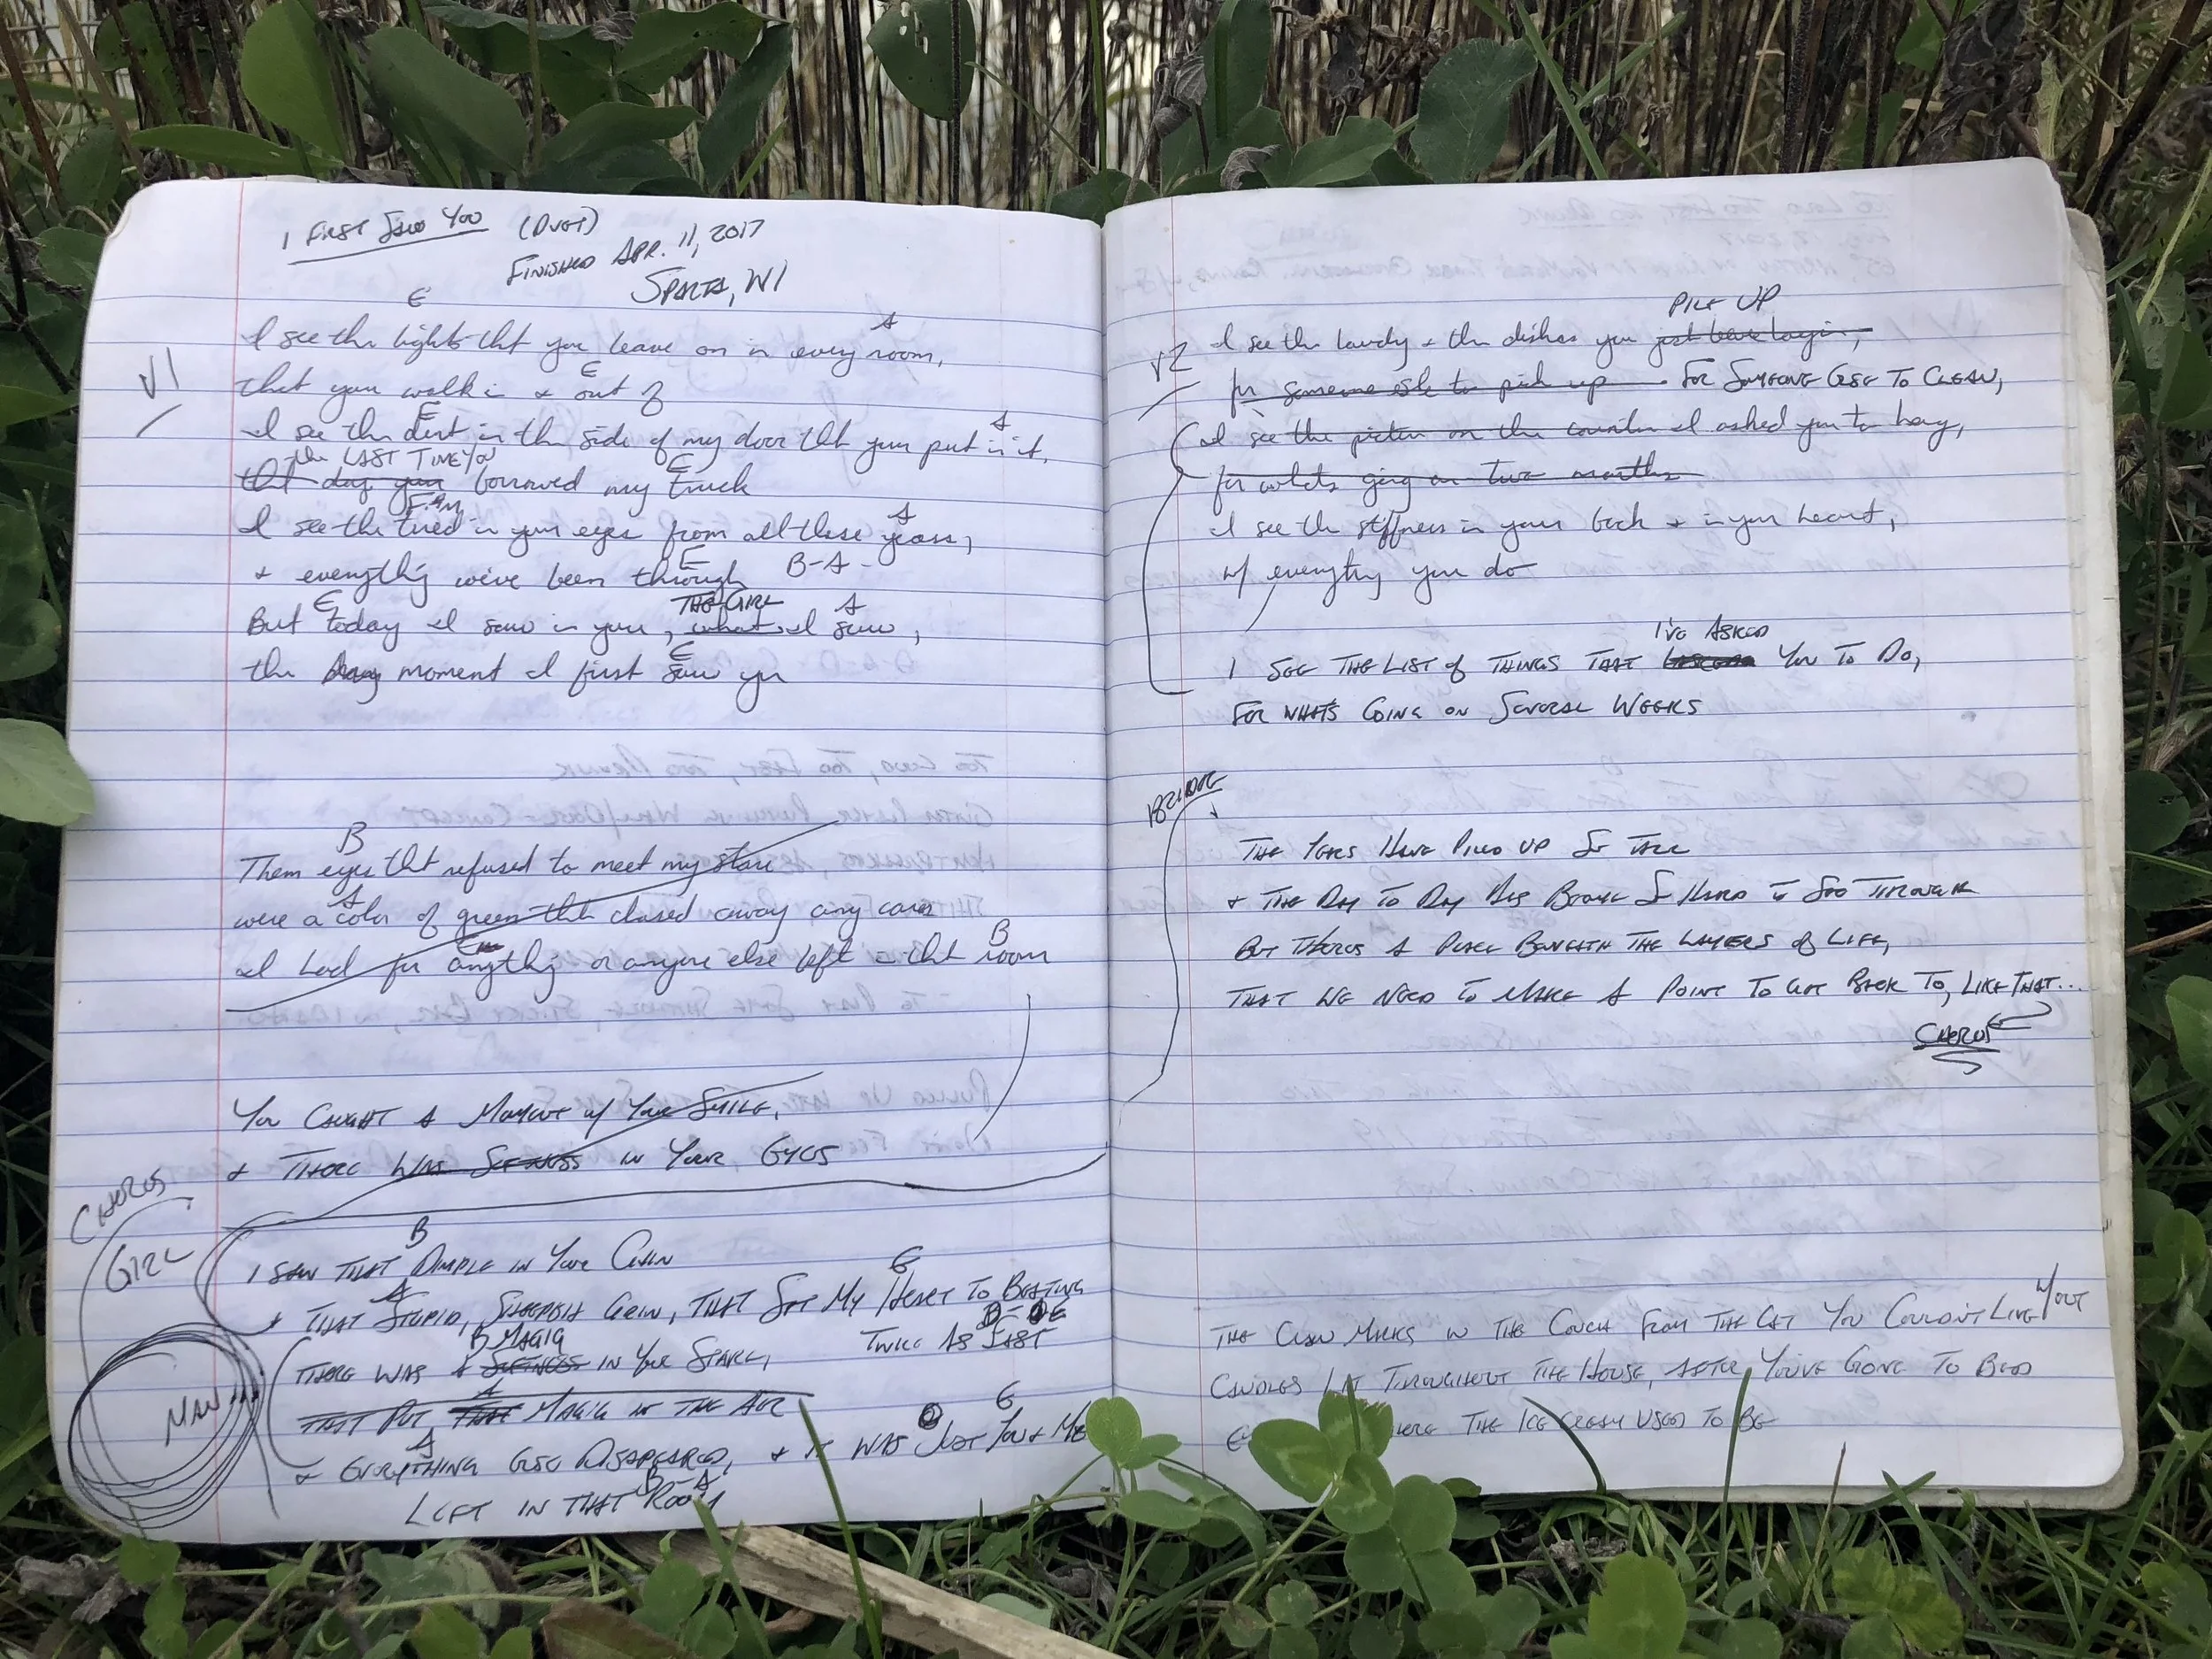 I FIRST SAW YOU (DUET)
FINISHED APR. 11, 2017
SPARTA, WI
E A
I see the lights tht you leave on in every room,
V1
E
that you walk in & out of
E A
I see the dent in the side of my door tht you put in it,
the LAST TIME YOU E
tht day you borrowed my truck
F#M A
I see the tired in your eyes from all these years,
E B-A-
& everything we've been through
E THE GIRL A
But today I saw in you, what I saw,
E
the moment I first saw you
B
Them eyes tht refused to meet my stare
A
were a color of green tht chased away any cares
E B
I had for anything or anyone else left in tht room
YOU CAUGHT A MOMENT W/ YOUR SMILE,
& THERE WAS SOFTNESS IN YOUR EYES
CHORUS
GIRL
B
I SAW THAT DIMPLE IN YOUR CHIN
A E
& THAT STUPID, SHEEPISH GRIN, THAT SET MY HEART TO BEATING
TWICE AS FAST
B MAGIC
THERE WAS A SOFTNESS IN YOUR STARE,
MAN
A
THAT PUT THAT MAGIC IN THE AIR
A E
& EVERYTHING ELSE DISAPEARED, & IT WAS JUST YOU & ME
B-A
LEFT IN THAT ROOM
PILE UP
V2
I see the laundry & the dishes you just leave layin,
for someone else to pick up. FOR SOMEONE ELSE TO CLEAN,
I see the picture on the counter I asked you to hang,
for whats going on two months
I see the stiffness in your back & in your heart,
w/ everything you do
I'VE ASKED
I SEE THE LIST OF THINGS THAT YOU TO DO,
FOR WHAT'S GOING ON SEVERAL WEEKS
BRIDGE
THE YEARS HAVE PILED UP SO TALL
& THE DAY TO DAY HAS BECOME SO HARD TO SEE THROUGH
BUT THERES A PLACE BENEATH THE LAYERS OF LIFE,
THAT WE NEED TO MAKE A POINT TO GET BACK TO, LIKE THAT...
CHORUS
THE CLAW MARKS IN THE COUCH FROM THE CAT YOU COULDN'T LIVE W/OUT
CANDLES LIT THROUGHOUT THE HOUSE, AFTER YOU'VE GONE TO BED
WHERE THE ICE CREAM USED TO BE